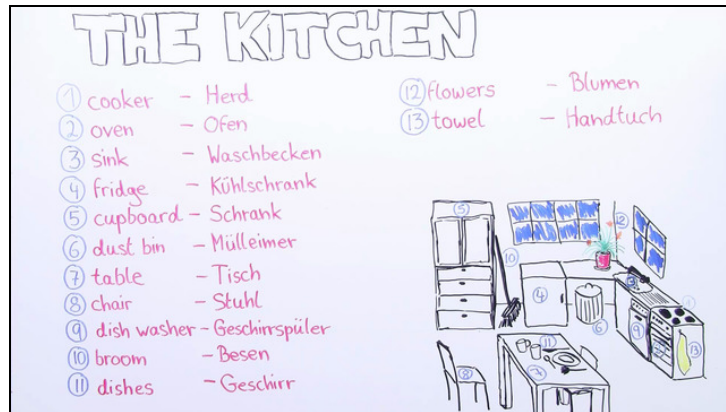 THE KITCHEN
① cooker – Herd
② oven – Ofen
③ sink – Waschbecken
④ fridge – Kühlschrank
⑤ cupboard – Schrank
⑥ dust bin – Mülleimer
⑦ table – Tisch
⑧ chair – Stuhl
⑨ dish washer – Geschirrspüler
⑩ broom – Besen
⑪ dishes – Geschirr
⑫ flowers – Blumen
⑬ towel – Handtuch
⑤
⑫
⑩
④
③
①
⑥
⑨
②
⑬
⑪
⑦
⑧